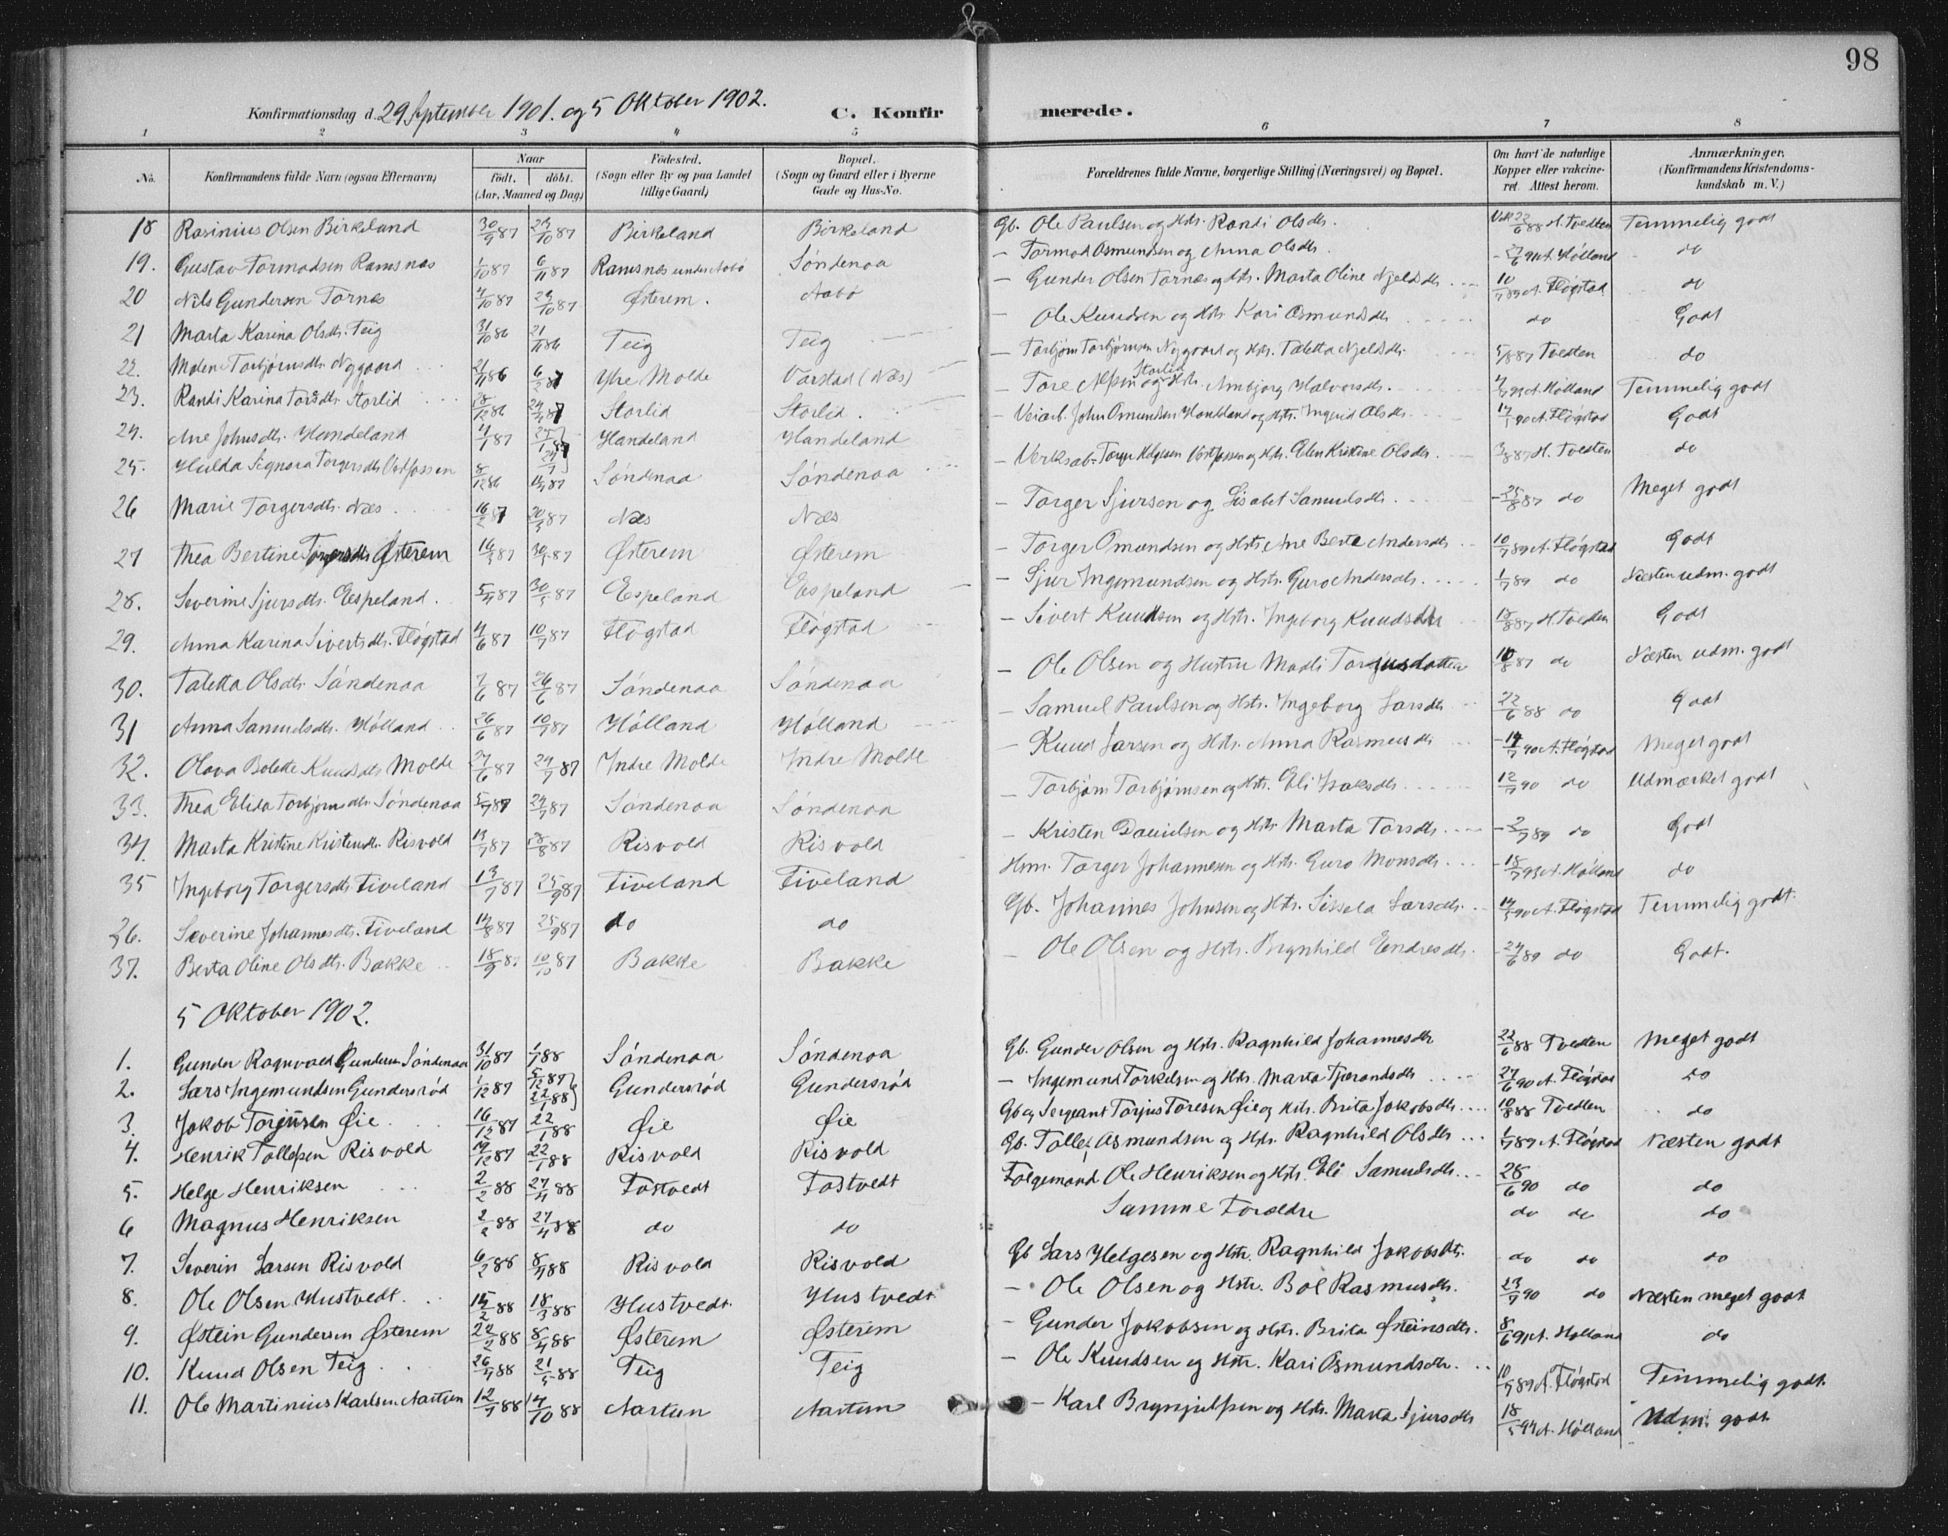 98
Konfirmationsdag d. 29 September 1901. og 5 Oktober 1902. C. Konfirmerede.
1 2 3 4 5 6 7 8
No. Konfirmandens fulde Navn (ogsaa Efternavn) Naar födt. döbt. (Aar, Maaned og Dag) Födested. (Sogn eller By og paa Landet tillige Gaard) Bopæl. (Sogn og Gaard eller i Byerne Gade og Hus-No. Forældrenes fulde Navne, borgerlige Stilling (Næringsvei) og Bopæl. Om havt de naturlige Kopper eller vakcineret. Attest herom. Anmærkninger. (Konfirmandens Kristendomskundskab m. V.)
18 Rasinius Olsen Birkeland 30/9 87 23/10 87 Birkeland Birkeland Gb. Ole Paulsen og Hstr. Randi Olsdtr. 22/6 88 H. Tvedten Temmelig godt
19. Gustav Tormodsen Ramsnæs 1/10 87 6/11 87 Ramsnæs under Aabö Söndenaa — Tormod Osmundsen og Anna Olsdtr. A. Hölland do
20 Nils Gundersen Tornæs 4/10 87 Østerem. Aabö — Gunder Olsen Tornæs og Hstr. Marta Oline Njelsdtr. 10/7 89 A. Flögstad do
21 Marta Karina Olsdtr. Teig 31/10 86 21/11 86 Teig Teig — Ole Knudsen og Hstr. Kari Osmundsdtr do Godt
22. Malene Torbjörnsdtr. Nygaard 21/11 86 6/2 87 Yhre Molde Varstad (Næs) — Torbjörn Torbjörnsen Nygaard og Hstr. Taletta Njelsdtr. 5/8 87 Tvedten do
23. Randi Karina Torsdtr. Storlid 18/12 86 24/4 87 Storlid Storlid. — Tore Alfsen Storlid og Hstr. Ambjörg Halvorsdtr. A. Hölland Temmelig godt
24. Ane Johnsdtr. Handeland 4/1 87 Handeland Handeland — Veiarb. John Osmundsen Handeland og Hstr. Ingerid Olsdtr. A. Flögstad Godt
25. Hulda Signora Torgersdtr. Vetfossen 8/12 86 Söndenaa Söndenaa — Verksarb. Torger Helgesen Vetfossen og Hstr. Elen Kristine Olsdtr. 3/8 87 H. Tvedten do
26 Marie Torgersdtr. Næs 16/2 87 20/3 87 Næs Næs — Torger Sjursen og Lisabet Samuelsdtr. 25/8 87 do Meget godt
27 Thea Bertine Torgersdtr. Østerem 16/3 87 30/5 87 Østerem Østerem — Torger Omundsen og Hstr. Ane Berte Andersdtr. 10/7 89 A. Flögstad Godt
28. Severine Sjursdtr. Eespeland. 5/4 87 30/5 87 Eespeland Eespeland — Sjur Ingemundsen og Hstr. Guro Andersdtr. 1/7 89 do Næsten udm. godt
29. Anna Karina Sivertsdtr. Flögstad 4/6 87 10/7 87 Flögstad Flögstad — Sivert Knudsen og Hstr. Ingeborg Knudsdtr 18/8 87 H. Tvedten Godt
30. Taletta Olsdtr. Söndenaa 7/6 87 26/6 87 Söndenaa Söndenaa — Ole Olsen og Hustru Madli Torjusdatter 10/8 87 do Næsten udm. godt
31 Anna Samuelsdtr. Hölland 26/6 87 10/7 87 Hölland Hölland — Samuel Paulsen og Hstr. Ingeborg Larsdtr 22/6 88 do Godt
32. Olava Bolette Knudsdtr. Molde 27/6 87 24/7 87 Indre Molde Indre Molde — Knud Larsen og Hstr. Anna Rasmusdtr 14/7 90 A. Flögstad Meget godt
33. Thea Elida Torbjørnsdtr. Söndenaa 5/7 87 24/7 87 Söndenaa Söndenaa — Torbjörn Torbjörnsen og Hstr. Eli Isaksdtr. 12/7 90 do Udmærket godt
34. Marta Kristine Kristensdtr. Risvold 13/7 87 28/8 87 Risvold Risvold — Kristen Danielsen og Hstr. Marta Torsdtr. 2/7 89 do Godt
35 Ingeborg Torgersdtr. Fiveland 13/7 87 25/9 87 Fiveland Fiveland Hmn. Torger Johannesen og Hstr. Guro Monsdtr. 18/7 93 A. Hölland do
36. Severine Johannesdtr. Fiveland 14/8 87 25/9 87 do do Gb. Johannes Johnsen og Hstr. Sissela Larsdtr. A. Flögstad Temmelig godt.
37. Berta Oline Olsdtr. Bakke 18/9 87 10/10 87 Bakke Bakke — Ole Olsen og Hstr. Brynhild Eendresdtr. 24/6 89 do Godt.
5 Oktober 1902.
1. Gunder Ragnvald Gundersen Söndenaa 31/10 87 1/1 88 Söndenaa Söndenaa Gb. Gunder Olsen og Hstr. Ragnhild Johannesdtr 22/6 88 Tvedten Meget godt
2. Lars Ingemundsen Gundersröd 1/12 87 5/12 87 22/1 88 Gundersröd Gundersröd — Ingemund Torkelsen og Hstr. Marta Tjerandsdtr 27/6 90 A. Flögstad do
3. Jakob Torjusen Øie 16/12 87 22/1 88 Øie Øie Gb. og Sergeant Torjus Toresen Øie og Hstr. Brita Jakobsdtr. 10/8 88 Tvedten do
4. Henrik Tollefsen Risvold 19/12 87 22/1 88 Risvold Risvold Gb. Tollef Asmundsen og Hstr. Ragnhild Olsdtr 1/7 89 A. Flögstad Næsten godt
5. Helge Henriksen 2/2 88 27/4 88 Tostvedt Tostvedt Folgemand Ole Henriksen og Hstr. Eli Samuelsdtr. 28/6 90 do do
6 Magnus Henriksen 2/2 88 27/4 88 do do Samme Forældre do do do
7. Severin Larsen Risvold 6/2 88 8/4 88 Risvold Risvold Gb Lars Helgesen og Hstr. Ragnhild Jakobsdtr. do do do
8. Ole Olsen Hustvedt. 15/2 88 18/3 88 Hustvedt. Hustvedt — Ole Olsen og Hstr. Bol Rasmusdtr. 23/7 90 do Næsten meget godt
9. Østein Gundersen Østerem 22/2 88 8/4 88 Østerem Østerem — Gunder Jakobsen og Hstr. Brita Østeinsdtr. 8/6 91 A. Hölland do
10. Knud Olsen Teig 26/4 88 21/5 88 Teig Teig — Ole Knudsen og Hstr. Kari Osmundsdtr. 10/7 89 A. Flögstad Temmelig godt.
11. Ole Martinius Karlsen Aartun 12/7 88 14/10 88 Aartun Aartun — Karl Brynjulfsen og Hstr. Marta Sjursdtr 18/5 94 A. Hölland Udm. godt